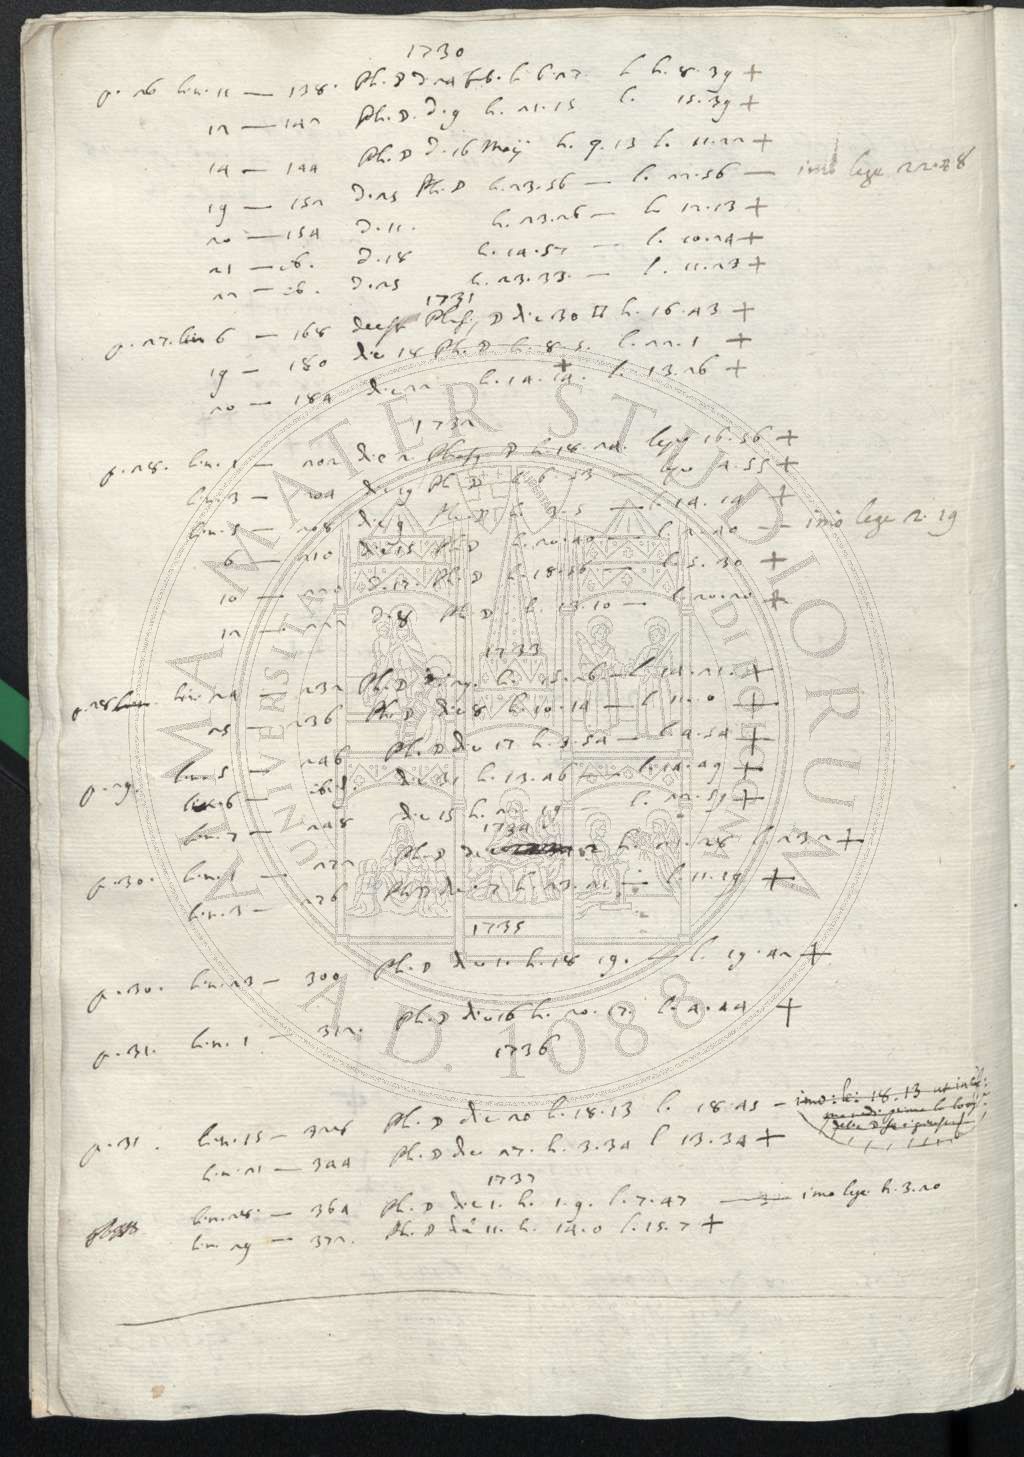 1730
p. 26 lin. 11 — 138. Ph. D d. 24 h. 6.27 l. h. 8. 39 +
12 — 142 Ph. D. d. 9 h. 21. 15 l. 15. 39 +
14 — 144 Ph. D d. 16 Maij h. 9. 13 l. 11. 22 +
19 — 152 d. 25 Ph. D h. 23. 56 — l. 22. 56 — imo lege 22. 48
20 — 154 d. 11. h. 23. 26 — l. 12. 13 +
21 — ib. d. 18 h. 14. 57 — l. 20. 24 +
22 — ib. d. 25 h. 23. 33. — l. 11. 23 +
1731
p. 27. lin 6 — 168 deest Phas. D die 30 h. 16. 43 +
19 — 180 die 18 Ph. D h. 8. 5. l. 22. 1 +
20 — 184 die 22 h. 14. 14. l. 13. 26 +
1732
p. 28. lin. 1 — 202 die 2 Phas. D h. 18. 24. lege 16. 56 +
lin. 3 — 204 die 19 Ph. D h. 6. 53 — lege 4. 55 +
lin. 5 — 208 die 9 Ph. D h. 3. 5 — l. 14. 14 +
6 — 210 die 15 Ph. D h. 20. 40 — l. 2. 40 — imo lege 2. 19
10 — 220 d. 17. Ph. D h. 18. 56 — l. 5. 30 +
12 — 222 d. 8 Ph. D. h. 13. 10 — l. 20. 20 +
1733
p. 28 lin. 24 — 232 Ph. D h. 15. 26 — l. 14. 21. +
25 — 236 Ph. D die 8 h. 10. 14 — l. 11. 0 +
p. 29. lin. 5 — 246 Ph. D die 17 h. 3. 54 — l. 4. 54 +
lin. 6 — ibid. die 31 h. 13. 46 — l. 14. 49 +
lin. 7 — 248 die 15 h. 19 — l. 22. 59 +
1734
p. 30. lin. 1 — 272 Ph. D die h. 21. 28 l. 23 2 +
lin. 3 — 276 Ph. D die 7 h. 23. 21 — l. 11. 19. +
1735
p. 30. lin. 23 — 300 Ph. D die 1. h. 18 19. — l. 19. 42 +
p. 31. lin. 1 — 312. Ph. D die 16 h. 20. 17. l. 4. 44 +
1736
p. 31. lin. 15 — 326 Ph. D die 20 h. 18. 13 l. 18. 45 — imo: le: 18. 13
lin. 21 — 344 Ph. D die 27. h. 3. 34 l 13. 34 +
1737
lin. 28. — 364 Ph. D die 1. h. 1. 9. l. 7. 47 — imo lege h. 3. 20
lin. 29 — 372. Ph. D die 11. h. 14. 0 l. 15. 7 +
ALMA MATER STUDIORUM
A.D. 1088